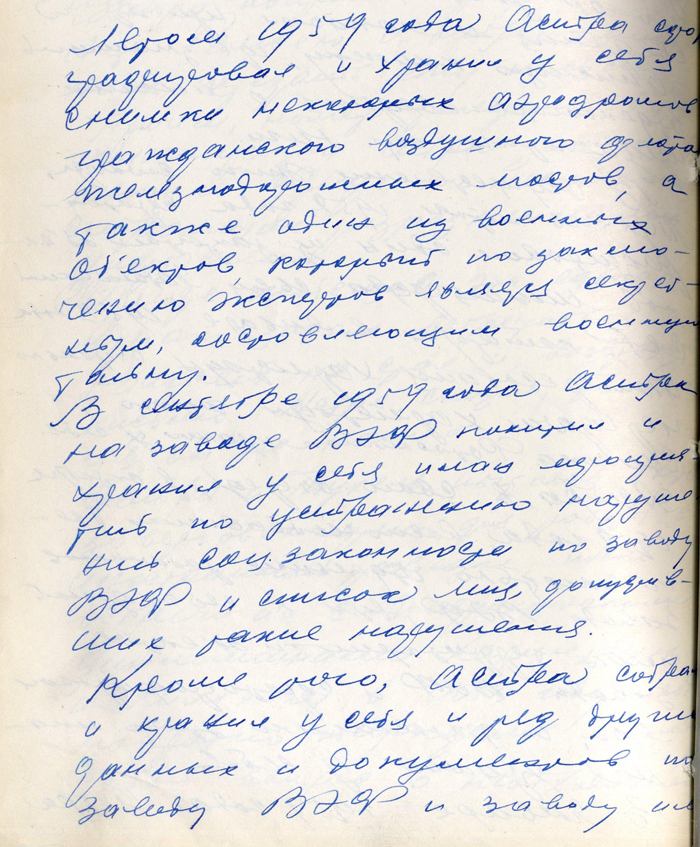 Летом 1959 года Астра сфо
графировал и хранил у себя
снимки некоторых аэродромов
гражданского воздушного флота
железнодорожных мостов, а
также один из военных
объектов, который по заклю-
чению экспертов является секрет-
ным, составляющим военную
тайну.
В сентябре 1959 года Астра
на заводе ВЭФ похитил и
хранил у себя план мероприя
тий по устранению наруше
ний соц.законности по заводу
ВЭФ и список лиц, допустив-
ших такие нарушения.
Кроме того, Астра собрал
и хранил у себя и ряд других
данных и документов по
заводу ВЭФ и заводу